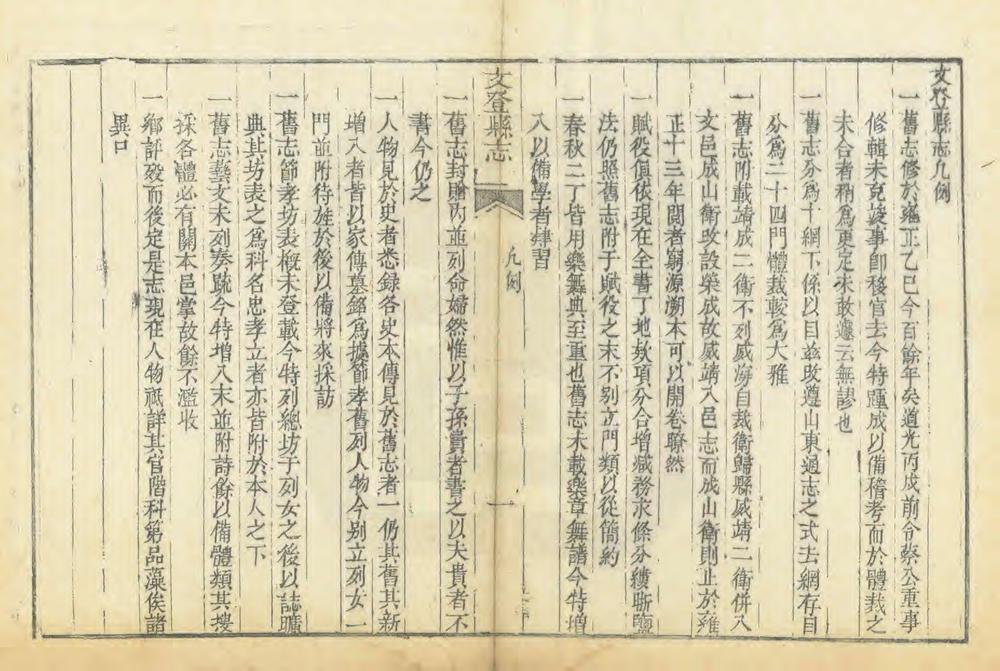 文登縣志凡例
一舊志修於雍正乙巳今百餘年矣道光丙戌前令蔡公重事
修輯未克竣事卽移官去今特踵成以備稽考而於體裁之
未合者稍爲更定未敢遽云無謬也
一舊志分爲十綱下係以目兹改遵山東通志之式去綱存目
分爲二十四門體裁較爲大雅
一舊志附載靖成二衛不列威海自裁衛歸縣威靖二衛併入
文邑成山衛改設榮成故威靖入邑志而成山衛則止於雍
正十三年閱者窮源溯本可以開卷瞭然
一賦役偵依現在全書丁地欵項分合增減務求條分縷晰鹽
法仍照舊志附于賦役之末不别立門類以從簡約
一春秋二丁皆用樂舞典至重也舊志未載樂章舞譜今特增
入以備學者肄習
文登縣志
凡例
一
一舊志封贈內並列命婦然惟以子孫貴者書之以夫貴者不
書今仍之
一人物見於史者悉録各史本傳見於舊志者一仍其舊其新
增入者皆以家傳墓銘爲據節孝舊列人物今别立列女一
門並附待旌於後以備將來採訪
一舊志節孝坊表概未登載今特列總坊于列女之後以誌曠
典其坊表之爲科名忠孝立者亦皆附於本人之下
一舊志藝文未列奏疏今特增入末並附詩餘以備體類其搜
採各體必有關本邑掌故餘不濫收
一鄉評歿而後定是志現在人物祗詳其官階科第品藻俟諸
異日